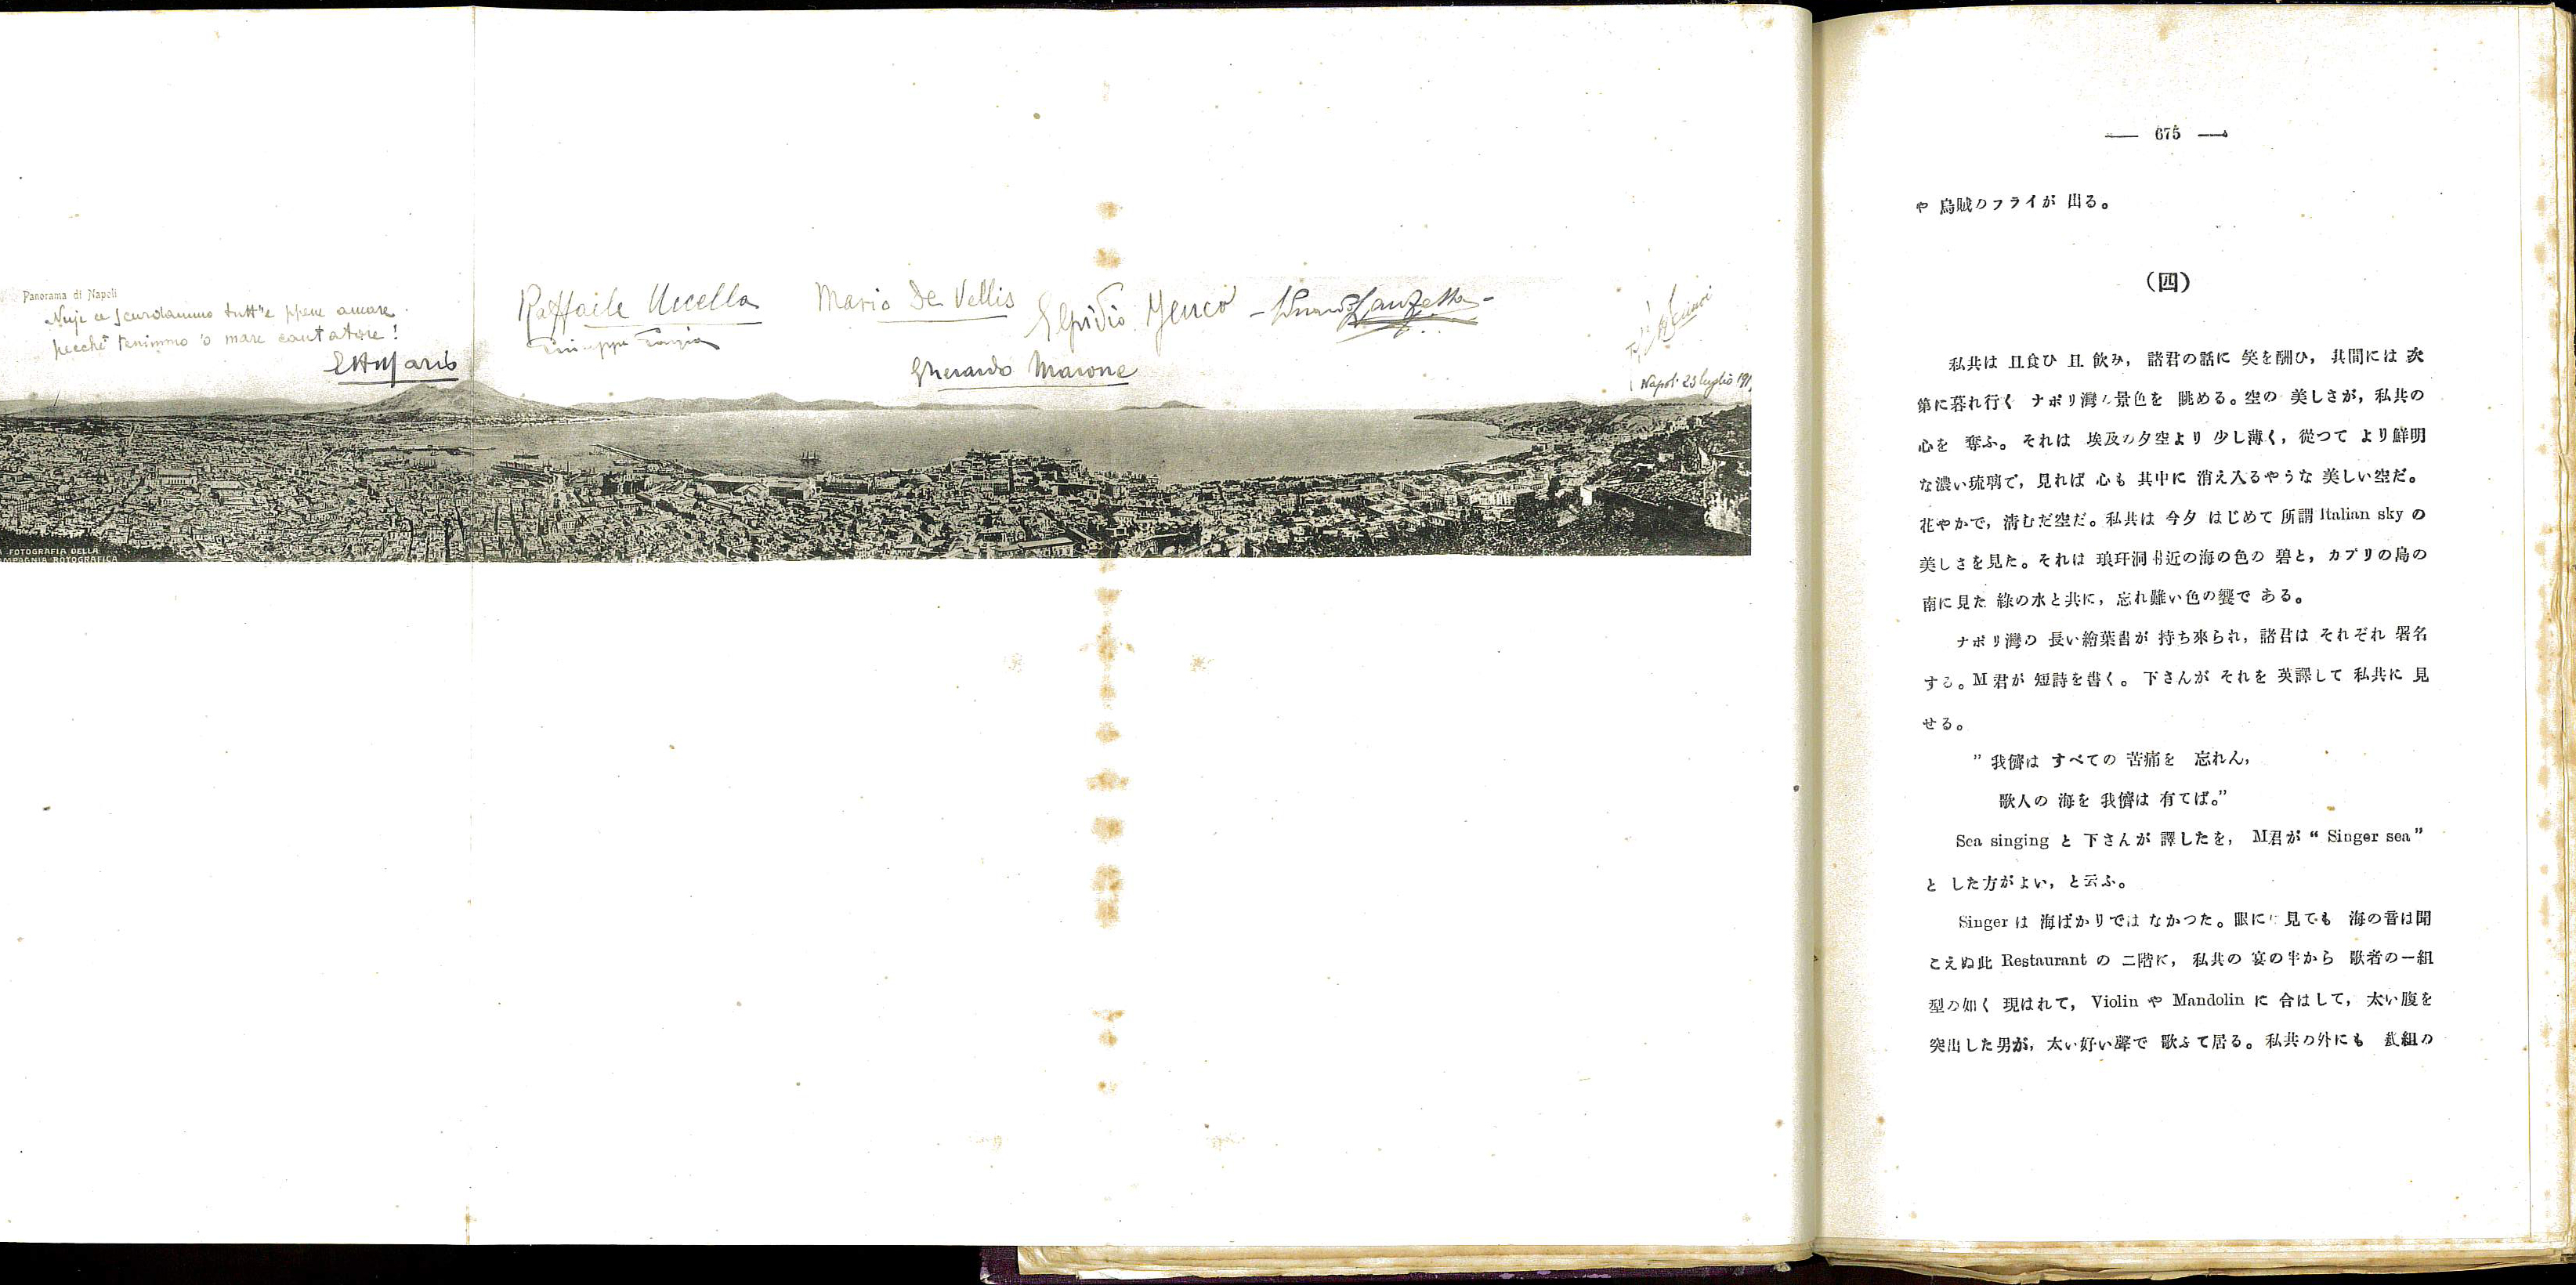 Panorama di Napoli
Nuje ce scurdammo tutt'e ppene amare
pecchè tenimmo 'o mare cantatore!
Raffaele Uccella
Mario De Vellis
Elpidio Jenco
Gherardo Marone
Napoli 23 luglio 191
FOTOGRAFIA DELLA
MPAGNIA ROTOGRAFICA
— 675 —
や 烏賊のフライが 出る。
(四)
私共は 且食ひ 且 飮み, 諸君の話に 笑を酬ひ, 其間には 次
第に暮れ行く ナポリ灣の景色を 眺める。空の 美しさが, 私共の
心を 奪ふ。それは 埃及の夕空より 少し薄く, 從つて より鮮明
な濃い琉璃で, 見れば 心も 其中に 消え入るやうな 美しい空だ。
花やかで, 淸むだ空だ。私共は 今夕 はじめて 所謂 Italian sky の
美しさを見た。それは 琅玕洞附近の海の色の 碧と, カプリの島の
南に見た 綠の水と共に, 忘れ難い色の饗で ある。
ナポリ灣の 長い繪葉書が 持ち來られ, 諸君は それぞれ 署名
する。M君が 短詩を書く。下さんが それを 英譯して 私共に 見
せる。
” 我儕は すべての 苦痛を 忘れん,
歌人の 海を 我儕は 有てば。”
Sea singing と 下さんが 譯したを, M君が “ Singer sea ”
と した方がよい, と云ふ。
Singer は 海ばかりでは なかつた。眼には 見ても 海の音は聞
こえぬ此 Restaurant の 二階に, 私共の 宴の半から 歌者の一組
型の如く 現はれて, Violin や Mandolin に 合はして, 太い腹を
突出した男が, 太い好い聲で 歌ふて居る。私共の外にも 貳組の